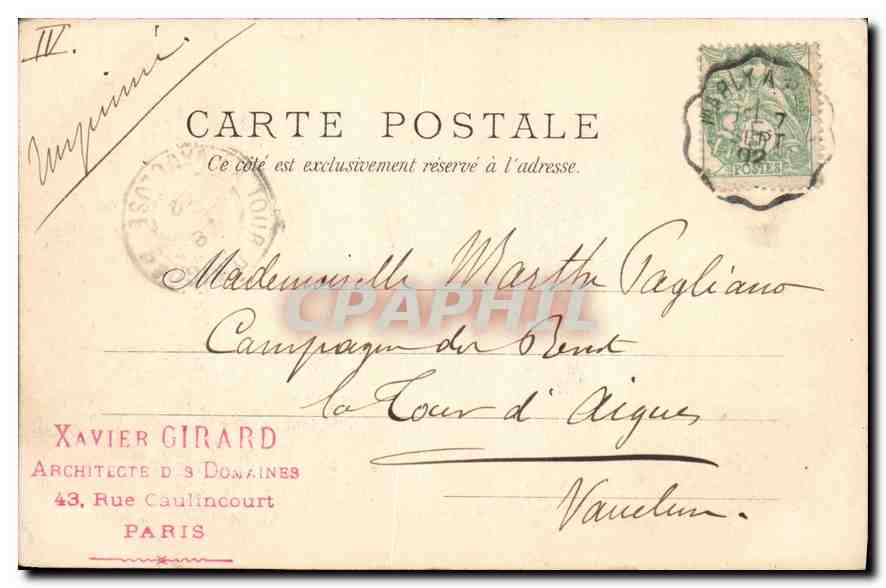 IV.
Imprimé.
CARTE POSTALE
Ce côté est exclusivement réservé à l'adresse.
MARLY A
7
SEPT
02
5
POSTES
LA TOUR D'AIGUES
VAUCLUSE
Mademoiselle Marthe Pagliano
Campagne du Revest
la Tour d'Aigues
Vaucluse.
CPAPHIL
XAVIER GIRARD
ARCHITECTE DES DOMAINES
43, Rue Caulincourt
PARIS